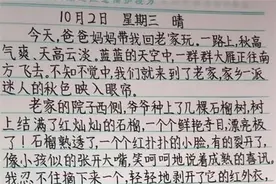 10月2日 星期三 晴
今天，爸爸妈妈带我回老家玩。一路上，秋高
气爽，天高云淡。蓝蓝的天空中，一群群大雁正往南
方飞去。不知不觉中，我们就来到了老家，家乡一派
迷人的秋色映入眼帘。
老家的院子西侧，爷爷种上了几棵石榴树，树
上结满了红灿灿的石榴，一个个鲜艳夺目，漂亮极
了！石榴熟透了，一个个红扑扑的小脸，有的裂开了，
像小孩似的张开大嘴，笑呵呵地说着成熟的喜讯。
我忍不住摘下来一个，轻轻地剥开了它的红外衣，